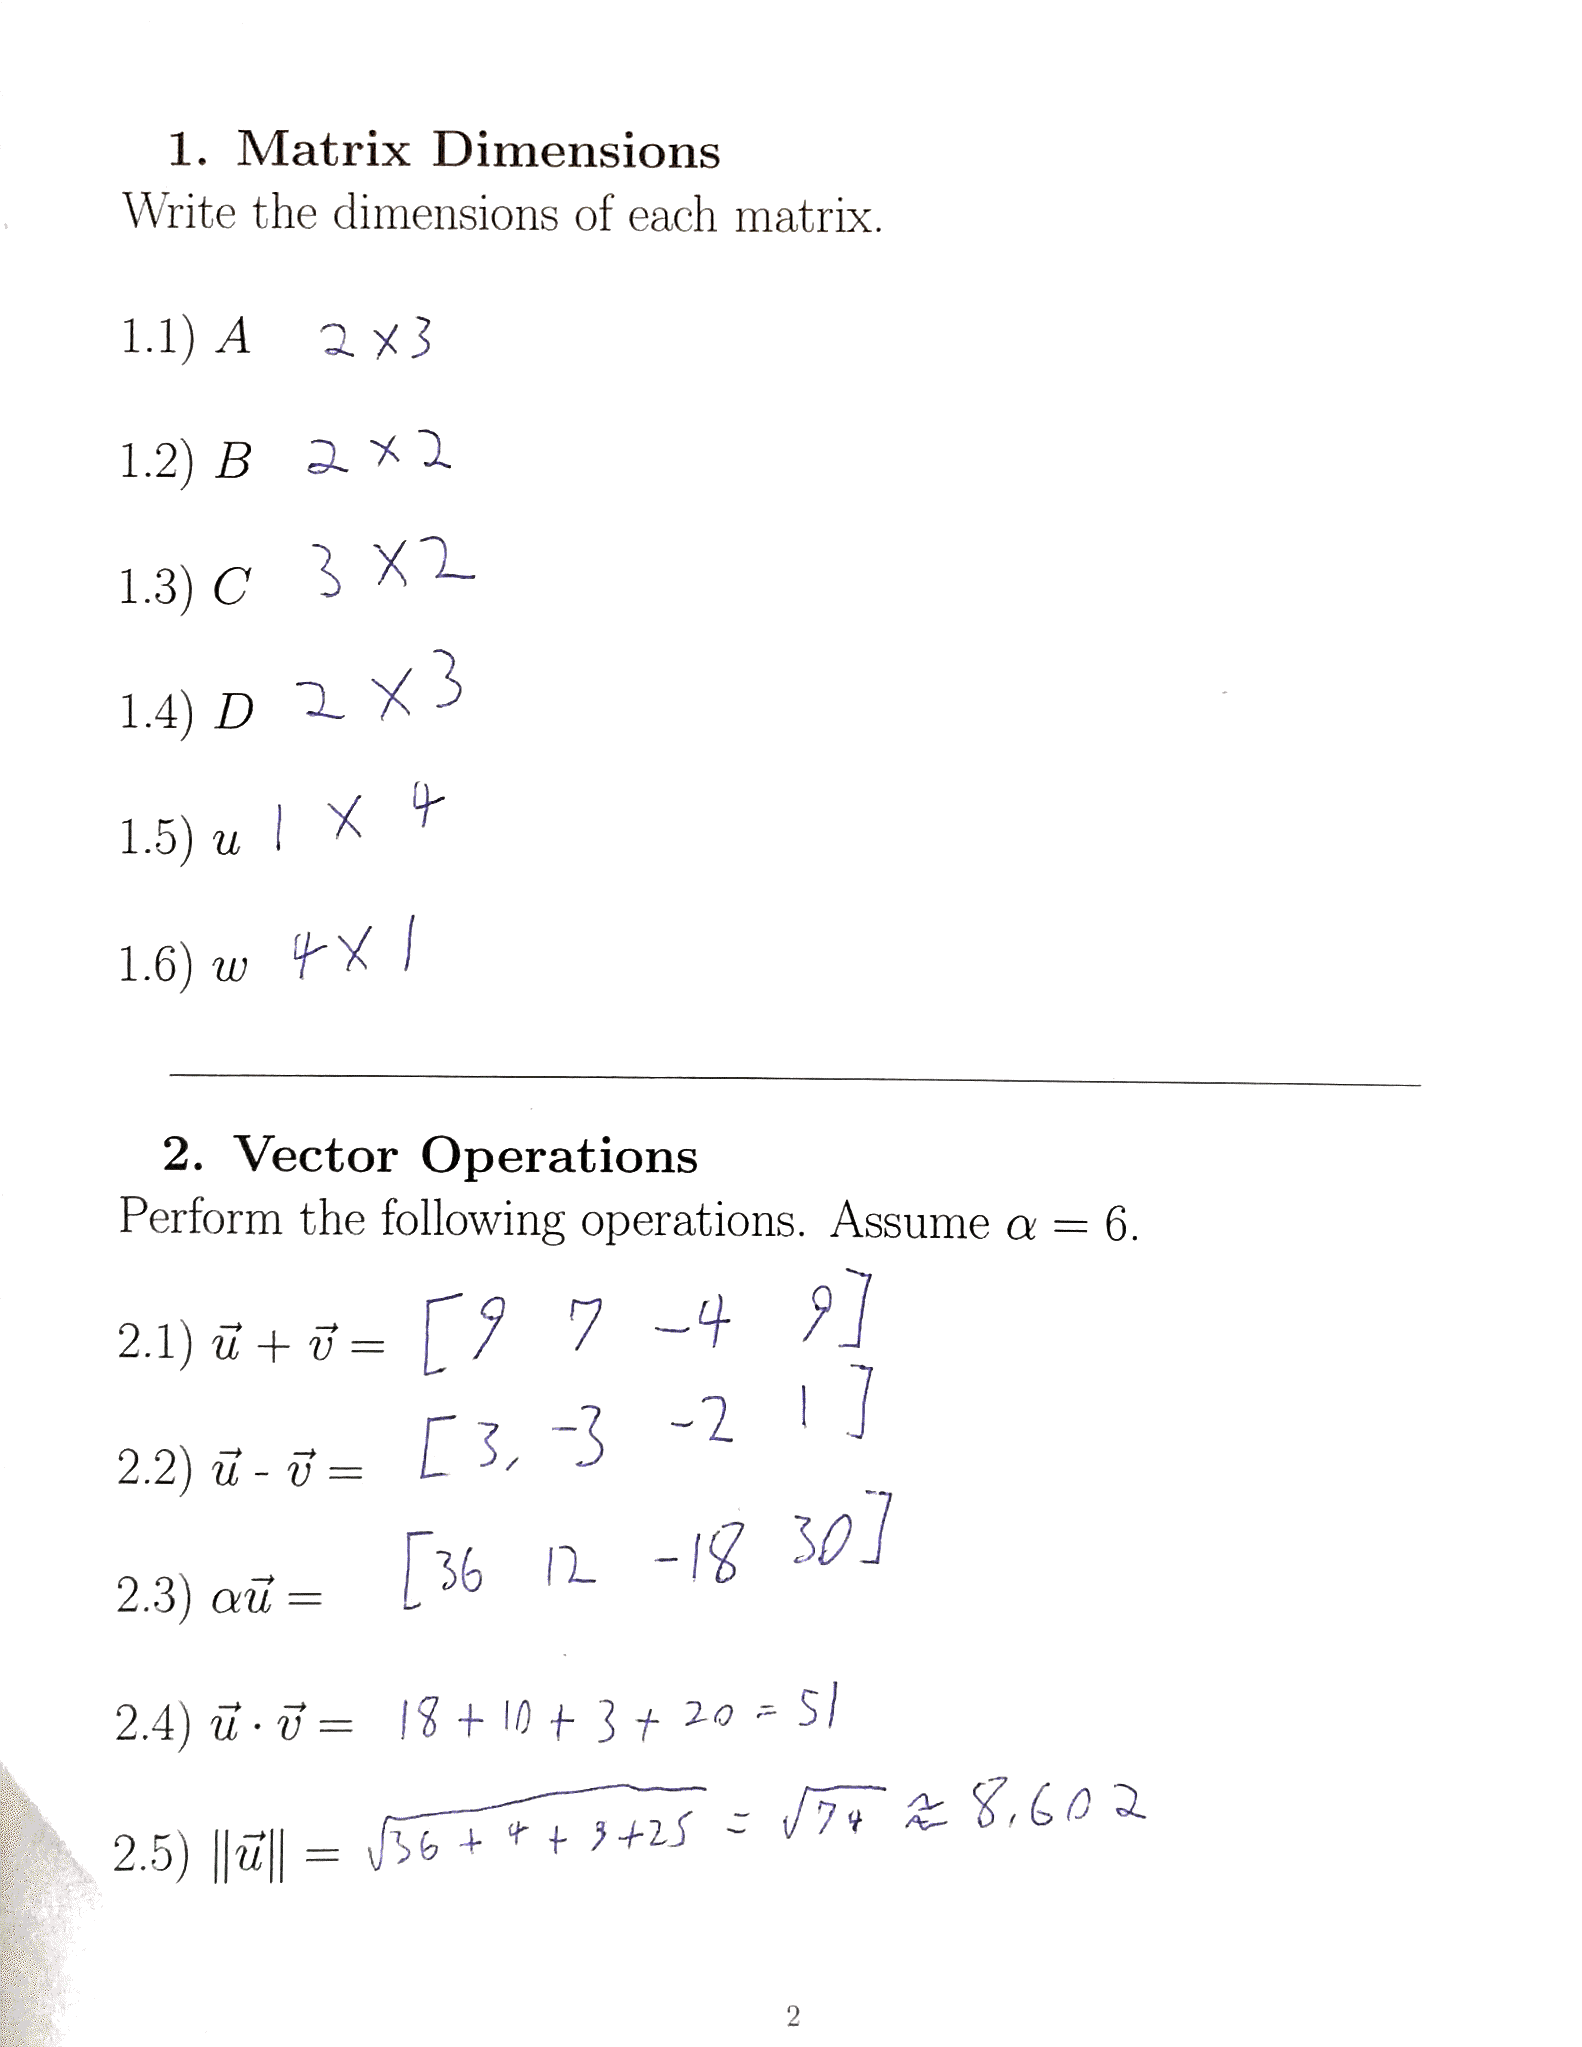 1. Matrix Dimensions
Write the dimensions of each matrix.
1.1) A 2 × 3
1.2) B 2 × 2
1.3) C 3 × 2
1.4) D 2 × 3
1.5) u 1 × 4
1.6) w 4 × 1
2. Vector Operations
Perform the following operations. Assume α = 6.
2.1) u⃗ + v⃗ = [9 7 -4 9]
2.2) u⃗ - v⃗ = [3, -3 -2 1]
2.3) αu⃗ = [36 12 -18 30]
2.4) u⃗ · v⃗ = 18 + 10 + 3 + 20 = 51
2.5) ‖u⃗‖ = √36 + 4 + 9 + 25 = √74 ≈ 8.602
2